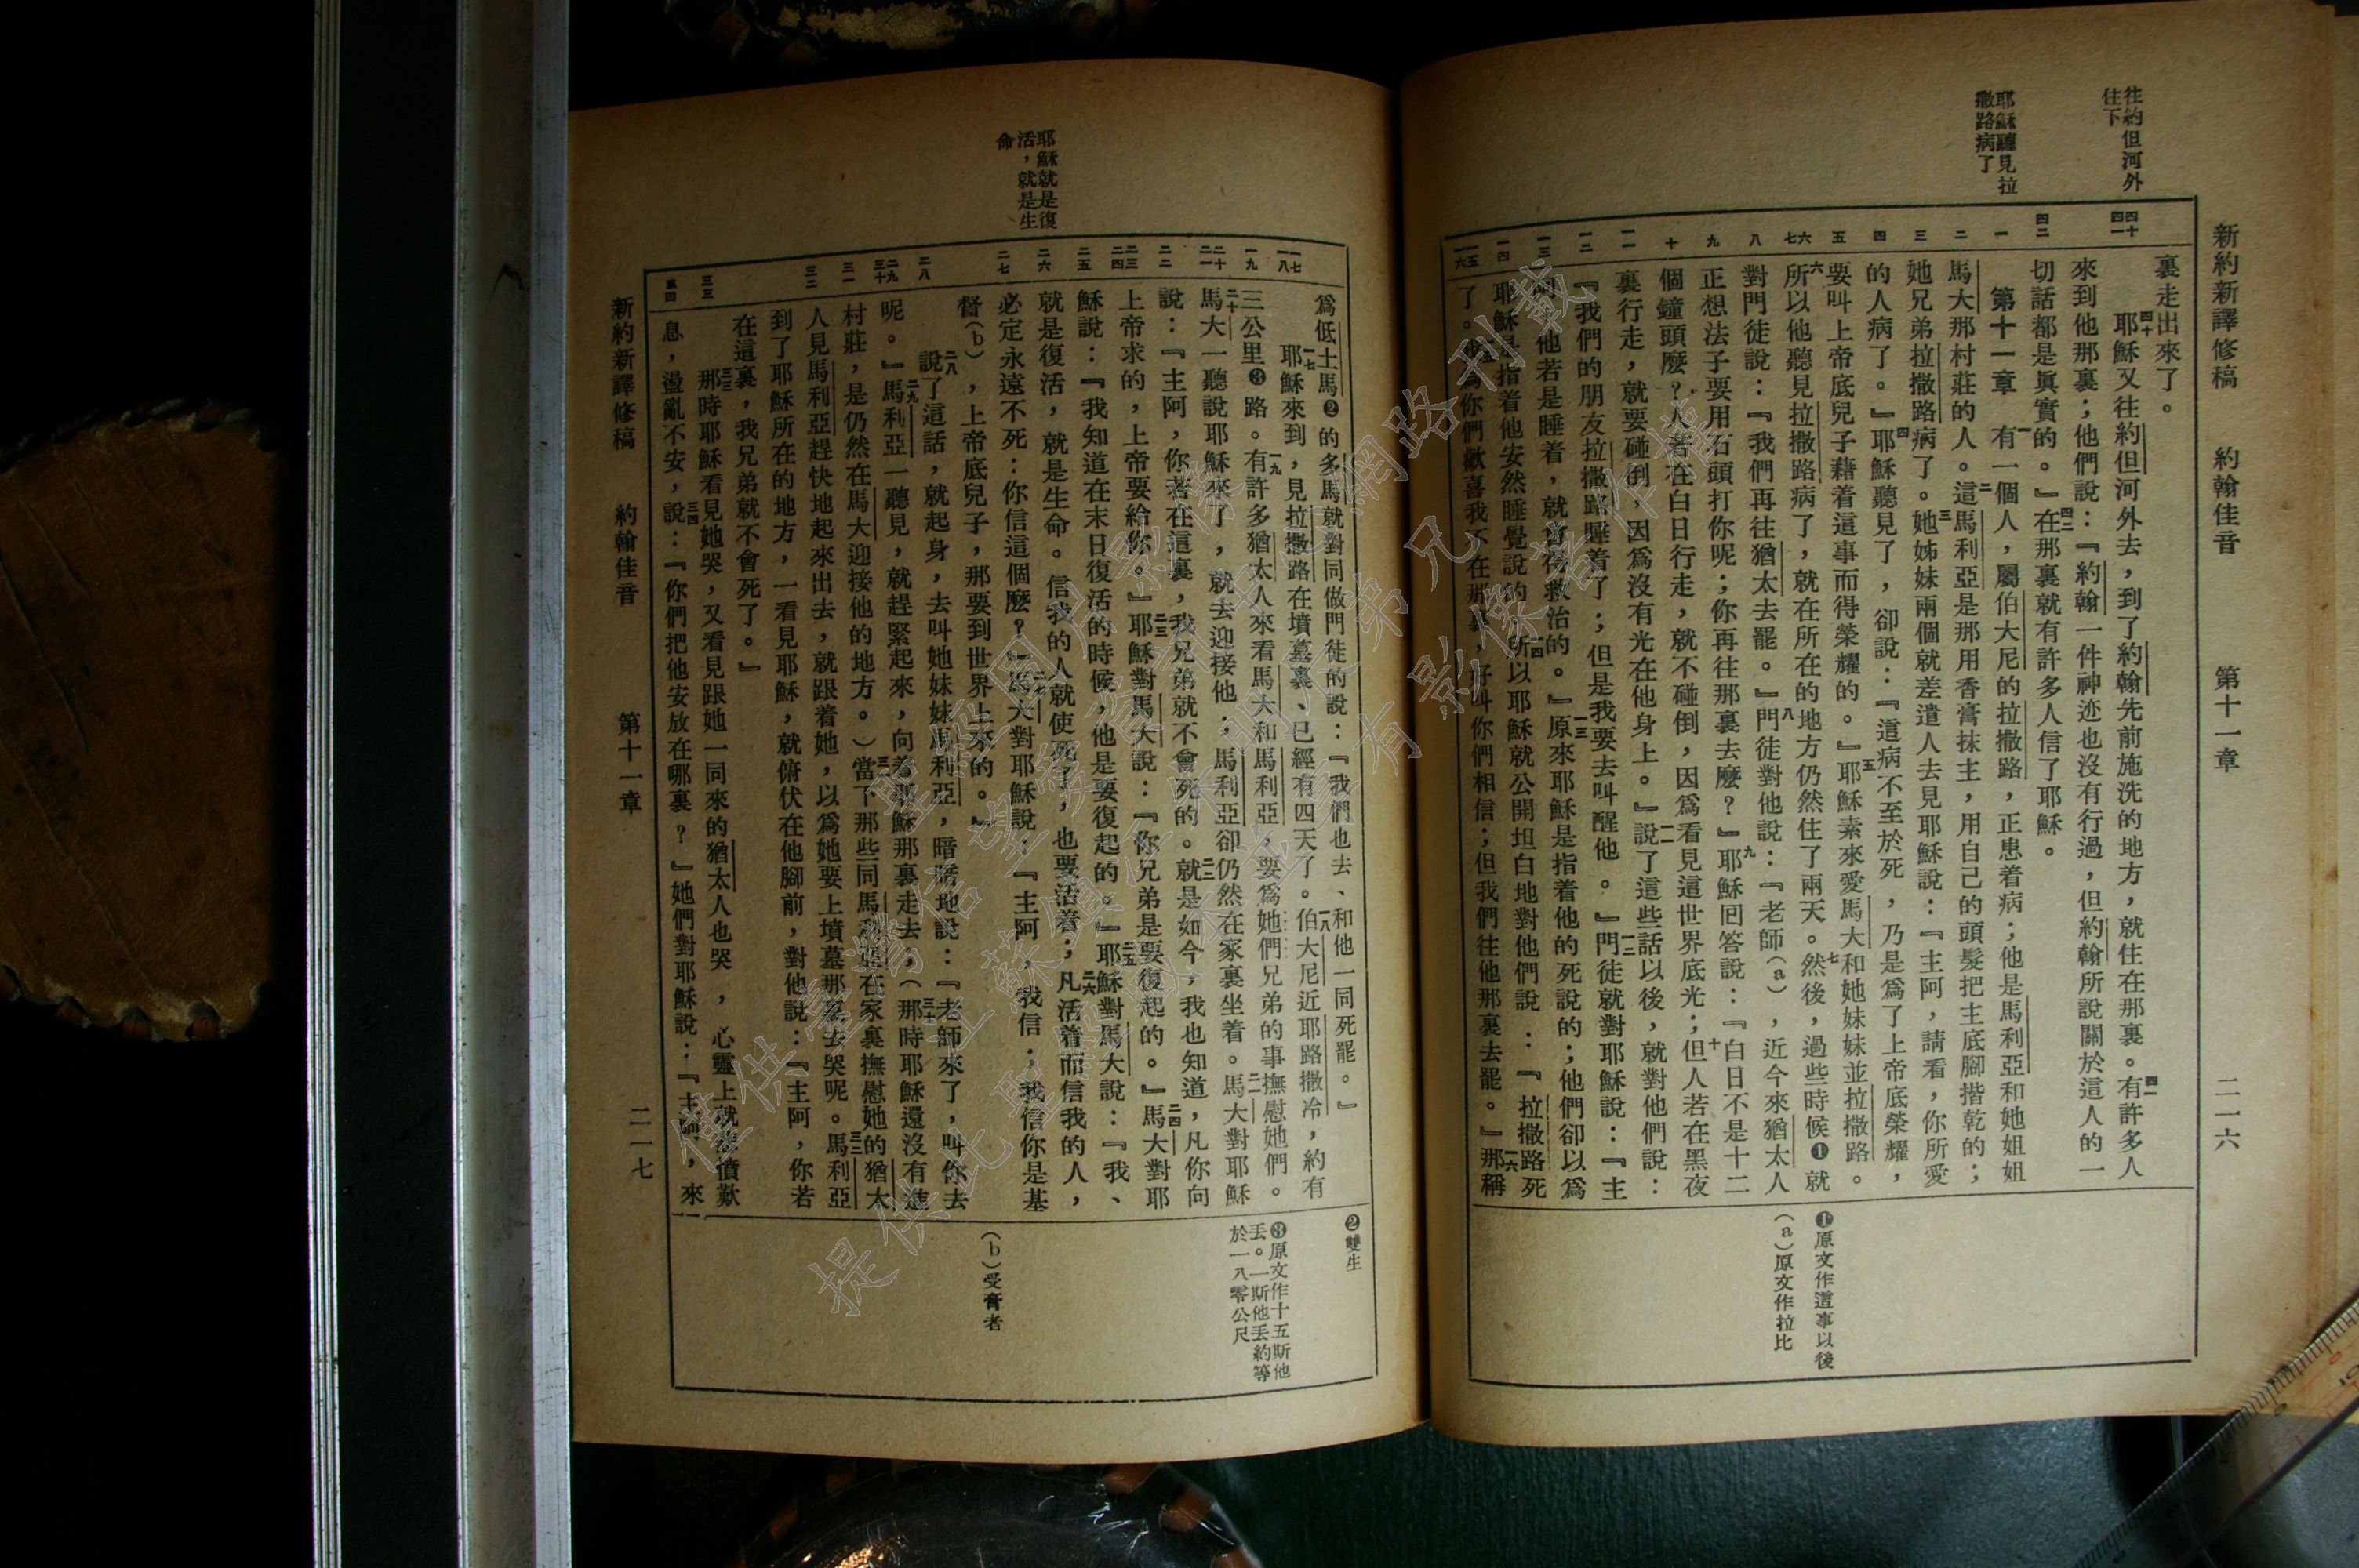 新約新譯修稿　約翰佳音　第十一章　二一六
往約但河外
住下
耶穌聽見拉
撒路病了
裏走出來了。
耶穌又往約但河外去，到了約翰先前施洗的地方，就住在那裏。有許多人
來到他那裏；他們說：『約翰一件神迹也沒有行過，但約翰所說關於這人的一
切話都是眞實的。』在那裏就有許多人信了耶穌。
第十一章　有一個人，屬伯大尼的拉撒路，正患着病；他是馬利亞和她姐姐
馬大那村莊的人。這馬利亞是那用香膏抹主，用自己的頭髮把主底腳揩乾的；
她兄弟拉撒路病了。她姊妹兩個就差遣人去見耶穌說：『主阿，請看，你所愛
的人病了。』耶穌聽見了，卻說：『這病不至於死，乃是爲了上帝底榮耀，
要叫上帝底兒子藉着這事而得榮耀的。』耶穌素來愛馬大和她妹妹並拉撒路。
所以他聽見拉撒路病了，就在所在的地方仍然住了兩天。然後，過些時候❶就
對門徒說：『我們再往猶太去罷。』門徒對他說：『老師（a），近今來猶太人
正想法子要用石頭打你呢；你再往那裏去麼？』耶穌回答說：『白日不是十二
個鐘頭麼？人若在白日行走，就不碰倒，因爲看見這世界底光；但人若在黑夜
裏行走，就要碰倒，因爲沒有光在他身上。』說了這些話以後，就對他們說：
『我們的朋友拉撒路睡着了；但是我要去叫醒他。』門徒就對耶穌說：『主
他若是睡着，就會得救治的。』原來耶穌是指着他的死說的；他們卻以爲
耶穌是指着他安然睡覺說的。所以耶穌就公開坦白地對他們說：『拉撒路死
了。我爲你們歡喜我不在那裏，好叫你們相信；但我們往他那裏去罷。』那稱
❶原文作這事以後
（a）原文作拉比
耶穌就是復
活，就是生
命
爲低土馬❷的多馬就對同做門徒的說：『我們也去、和他一同死罷。』
耶穌來到，見拉撒路在墳墓裏、已經有四天了。伯大尼近耶路撒冷，約有
三公里❸路。有許多猶太人來看馬大和馬利亞，要爲她們兄弟的事撫慰她們。
馬大一聽說耶穌來了，就去迎接他；馬利亞卻仍然在家裏坐着。馬大對耶穌
說：『主阿，你若在這裏，我兄弟就不會死的。就是如今，我也知道，凡你向
上帝求的，上帝要給你。』耶穌對馬大說：『你兄弟是要復起的。』馬大對耶
穌說：『我知道在末日復活的時候，他是要復起的。』耶穌對馬大說：『我、
就是復活，就是生命。信我的人就使死了，也要活着；凡活着而信我的人，
必定永遠不死：你信這個麼？』馬大對耶穌說：『主阿，我信；我信你是基
督（b），上帝底兒子，那要到世界上來的。』
說了這話，就起身，去叫她妹妹馬利亞，暗暗地說：『老師來了，叫你去
呢。』馬利亞一聽見，就趕緊起來，向着耶穌那裏走去，（那時耶穌還沒有進
村莊，是仍然在馬大迎接他的地方。）當下那些同馬利亞在家裏撫慰她的猶太
人見馬利亞趕快地起來出去，就跟着她，以爲她要上墳墓那裏去哭呢。馬利亞
到了耶穌所在的地方，一看見耶穌，就俯伏在他腳前，對他說：『主阿，你若
在這裏，我兄弟就不會死了。』
那時耶穌看見她哭，又看見跟她一同來的猶太人也哭，心靈上就悲憤歎
息，盪亂不安，說：『你們把他安放在哪裏？』她們對耶穌說：『主阿，來
❷雙生
❸原文作十五斯他
丟。一斯他丟約等
於一八零公尺
（b）受膏者
新約新譯修稿　約翰佳音　第十一章　二一七